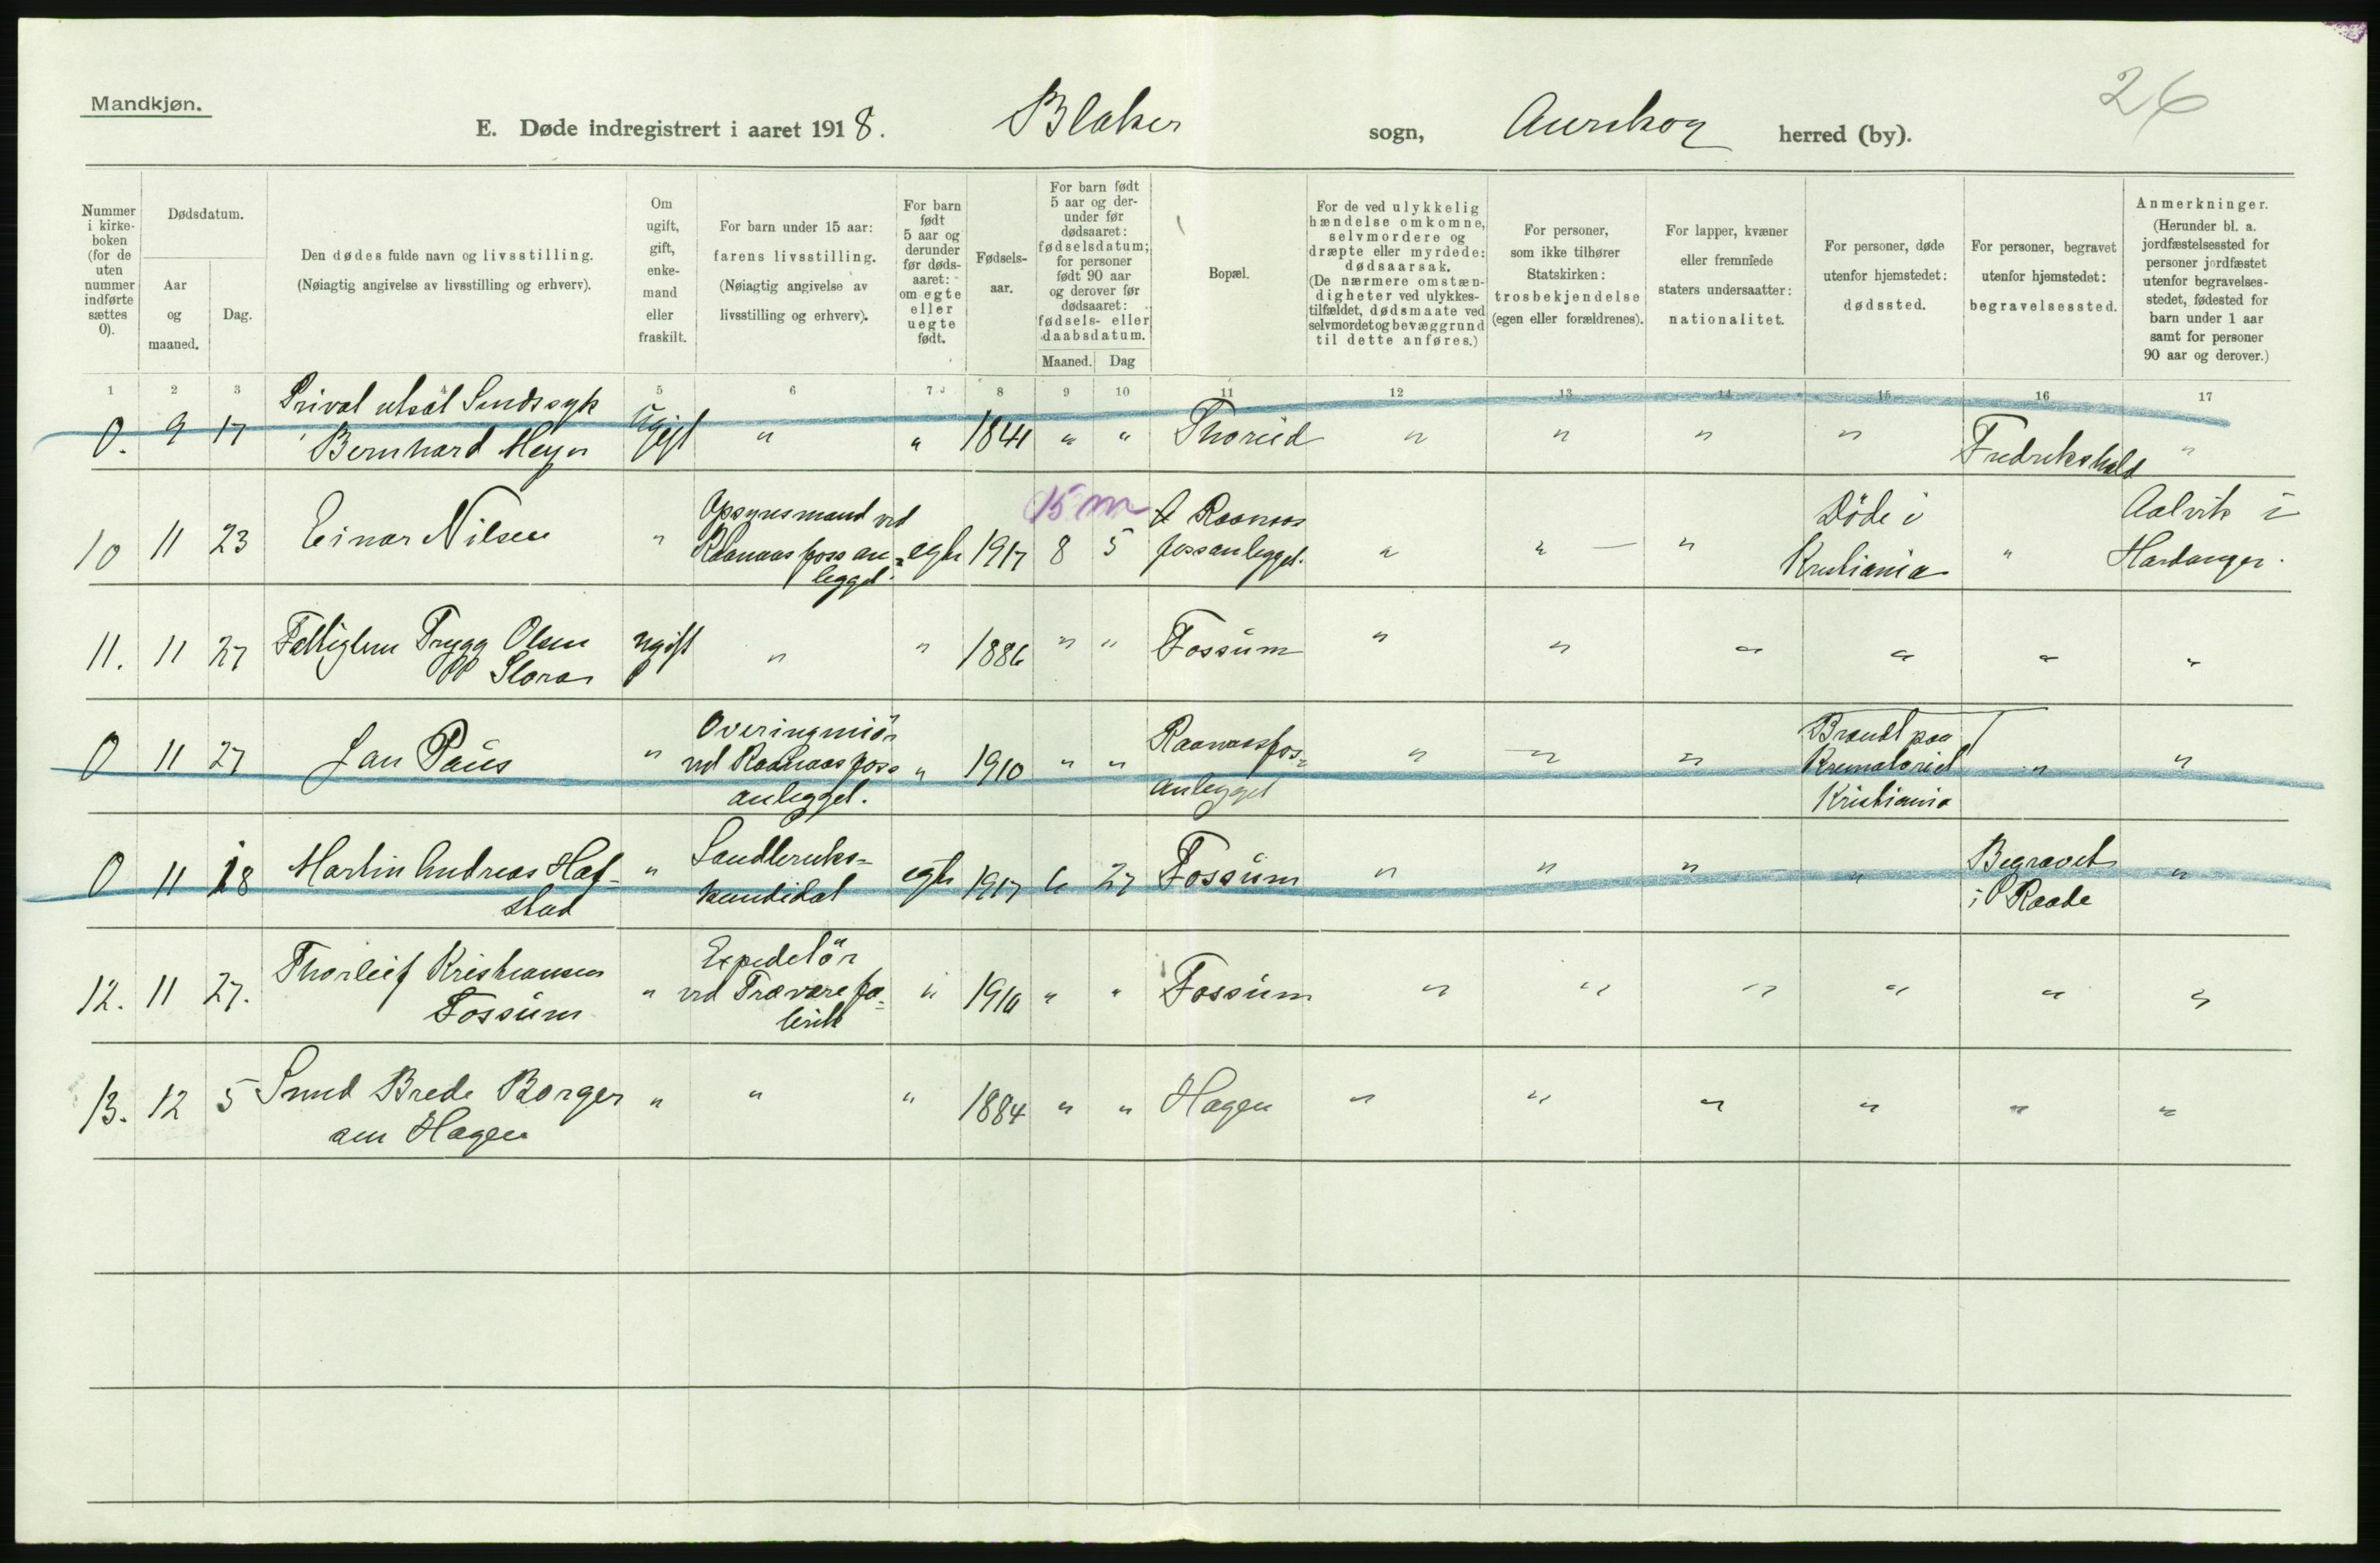 Mandkjøn.
26
E. Døde indregistrert i aaret 1918. Blaker sogn, Aurskog herred (by).
Nummer i kirkeboken (for de uten nummer indførte sættes 0).
Dødsdatum.
Aar og maaned.
Dag.
Den dødes fulde navn og livsstilling.
(Nøiagtig angivelse av livsstilling og erhverv).
Om ugift, gift, enkemand eller fraskilt.
For barn under 15 aar: farens livsstilling.
(Nøiagtig angivelse av livsstilling og erhverv).
For barn født 5 aar og derunder før dødsaaret: om egte eller uegte født.
Fødselsaar.
For barn født 5 aar og derunder før dødsaaret: fødselsdatum; for personer født 90 aar og derover før dødsaaret: fødsels- eller daabsdatum.
Maaned. Dag
Bopæl.
For de ved ulykkelig hændelse omkomne, selvmordere og dræpte eller myrdede: dødsaarsak.
(De nærmere omstændigheter ved ulykkestilfældet, dødsmaate ved selvmordet og bevæggrund til dette anføres.)
For personer, som ikke tilhører Statskirken: trosbekjendelse (egen eller forældrenes).
For lapper, kvæner eller fremmede staters undersaatter: nationalitet.
For personer, døde utenfor hjemstedet: dødssted.
For personer, begravet utenfor hjemstedet: begravelsessted.
Anmerkninger.
(Herunder bl. a. jordfæstelsessted for personer jordfæstet utenfor begravelsesstedet, fødested for barn under 1 aar samt for personer 90 aar og derover.)
1 2 3 4 5 6 7 8 9 10 11 12 13 14 15 16 17
Privat utsat Sindssyk
0. 9 17 Bernhard Meyn Ugift " " 1841 " " Thorud " " " " Fredrikshald "
15 m
10 11 23 Einar Nilsen " Opsynsmand ved Raanaasfossanlegget. egte 1917 8 5 Raanaasfossanlegget. " " — " Døde i Kristiania " Aalvik i Hardanger.
11. 11 27 Fattiglem Trygg Olsen Slora ugift " " 1886 " " Fossum " " " " " "
0 11 27 Jan Paus " Overingeniør ved Raanaasfossanlegget. " 1910 " " Raanaasfosanlegget " " " Brændt paa Krematoriet Kristiania " "
0 11 18 Martin Andreas Hafstad " Landbrukskandidat egte 1917 6 27 Fossum " " " " Begravet i Raade "
12. 11 27. Thorleif Kristiansen Fossum " Expeditør ved Trævarefabrik " 1910 " " Fossum " " " " " "
13. 12 5 Smed Brede Borgersen Hagen " " " 1884 " " Hagen " " " " " "